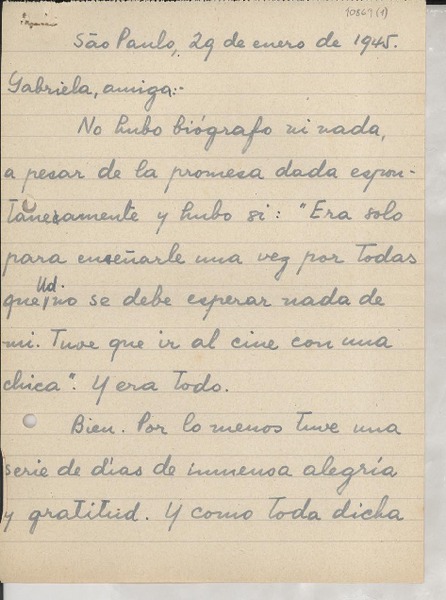 10869 (1)
São Paulo, 29 de enero de 1945.
Gabriela, amiga:-
No hubo biógrafo ni nada,
a pesar de la promesa dada espon-
táneamente y hubo si: "Era solo
para enseñarle una vez por todas
que Ud. no se debe esperar nada de
mi. Tuve que ir al cine con una
chica". Y era todo.
Bien. Por lo menos tuve una
serie de días de inmensa alegría
y gratitud. Y como toda dicha